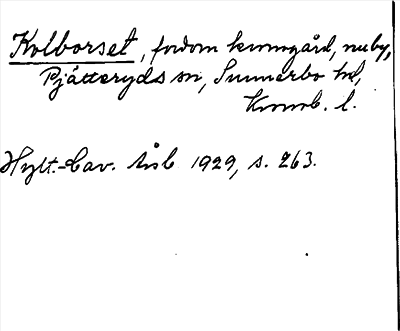 Kolborset, fordom kronogård, nu by,
Pjätteryds sn, Sunnerbo hd,
Kronob. l.
Hylt.-Cav. Årsb 1929, s. 263.